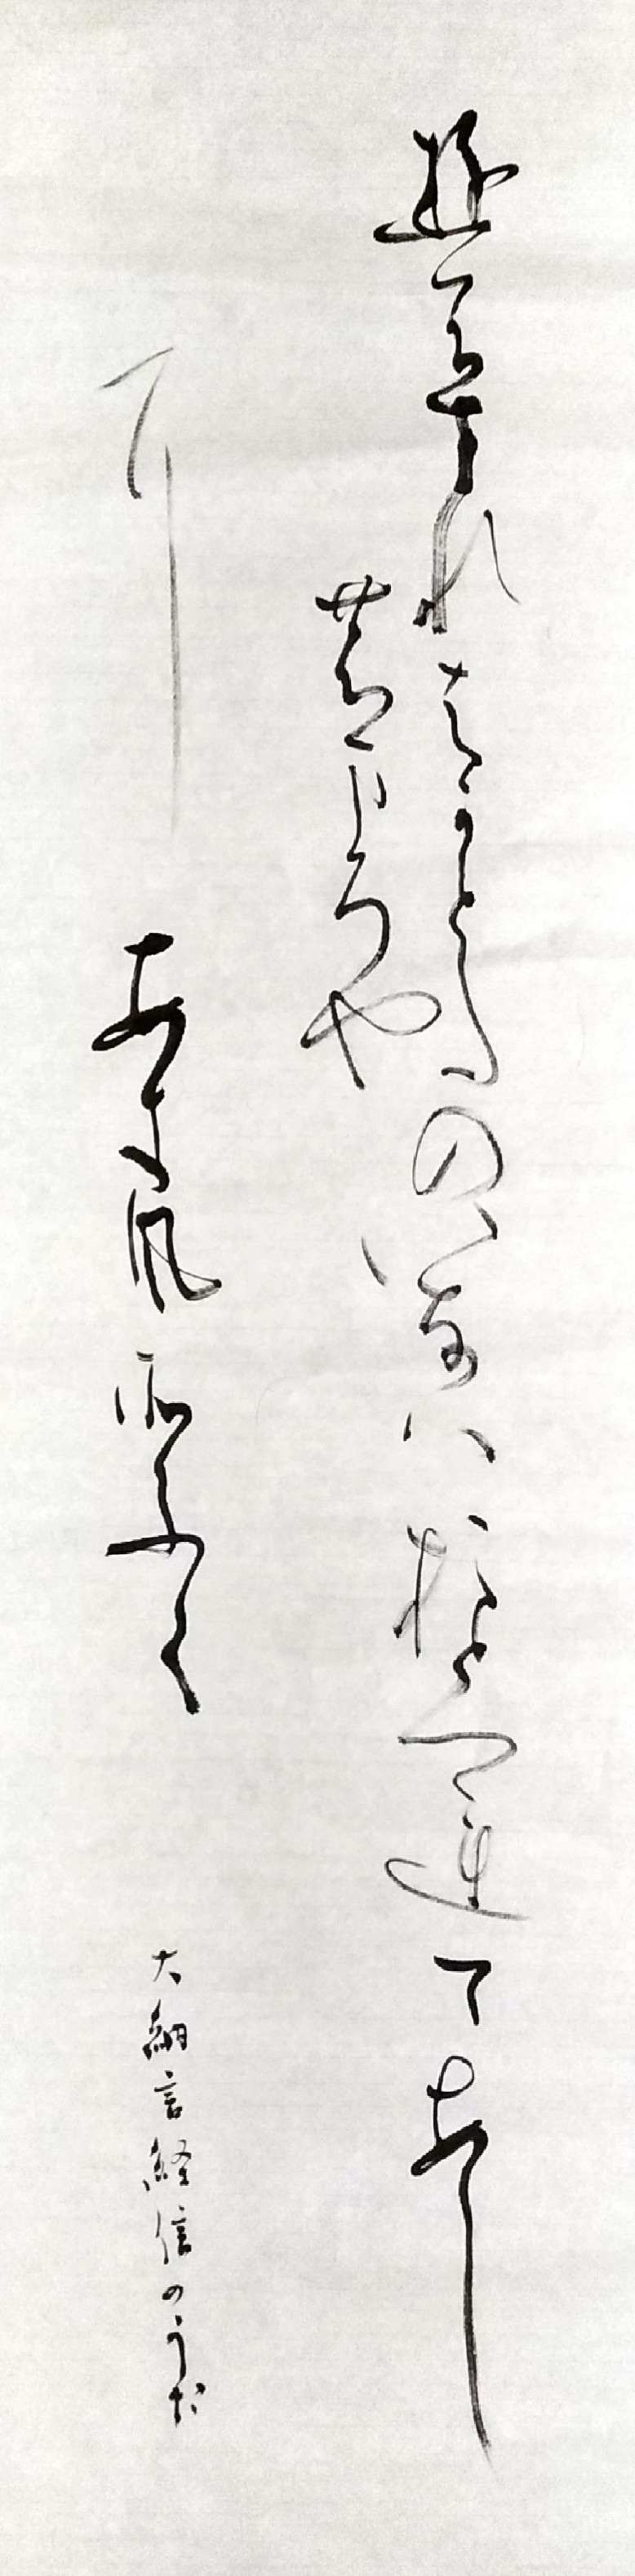 遊ふされはかとたのいなはおとつ連てあし
のまろや
耳あき風所ふく
大納言経信のうた